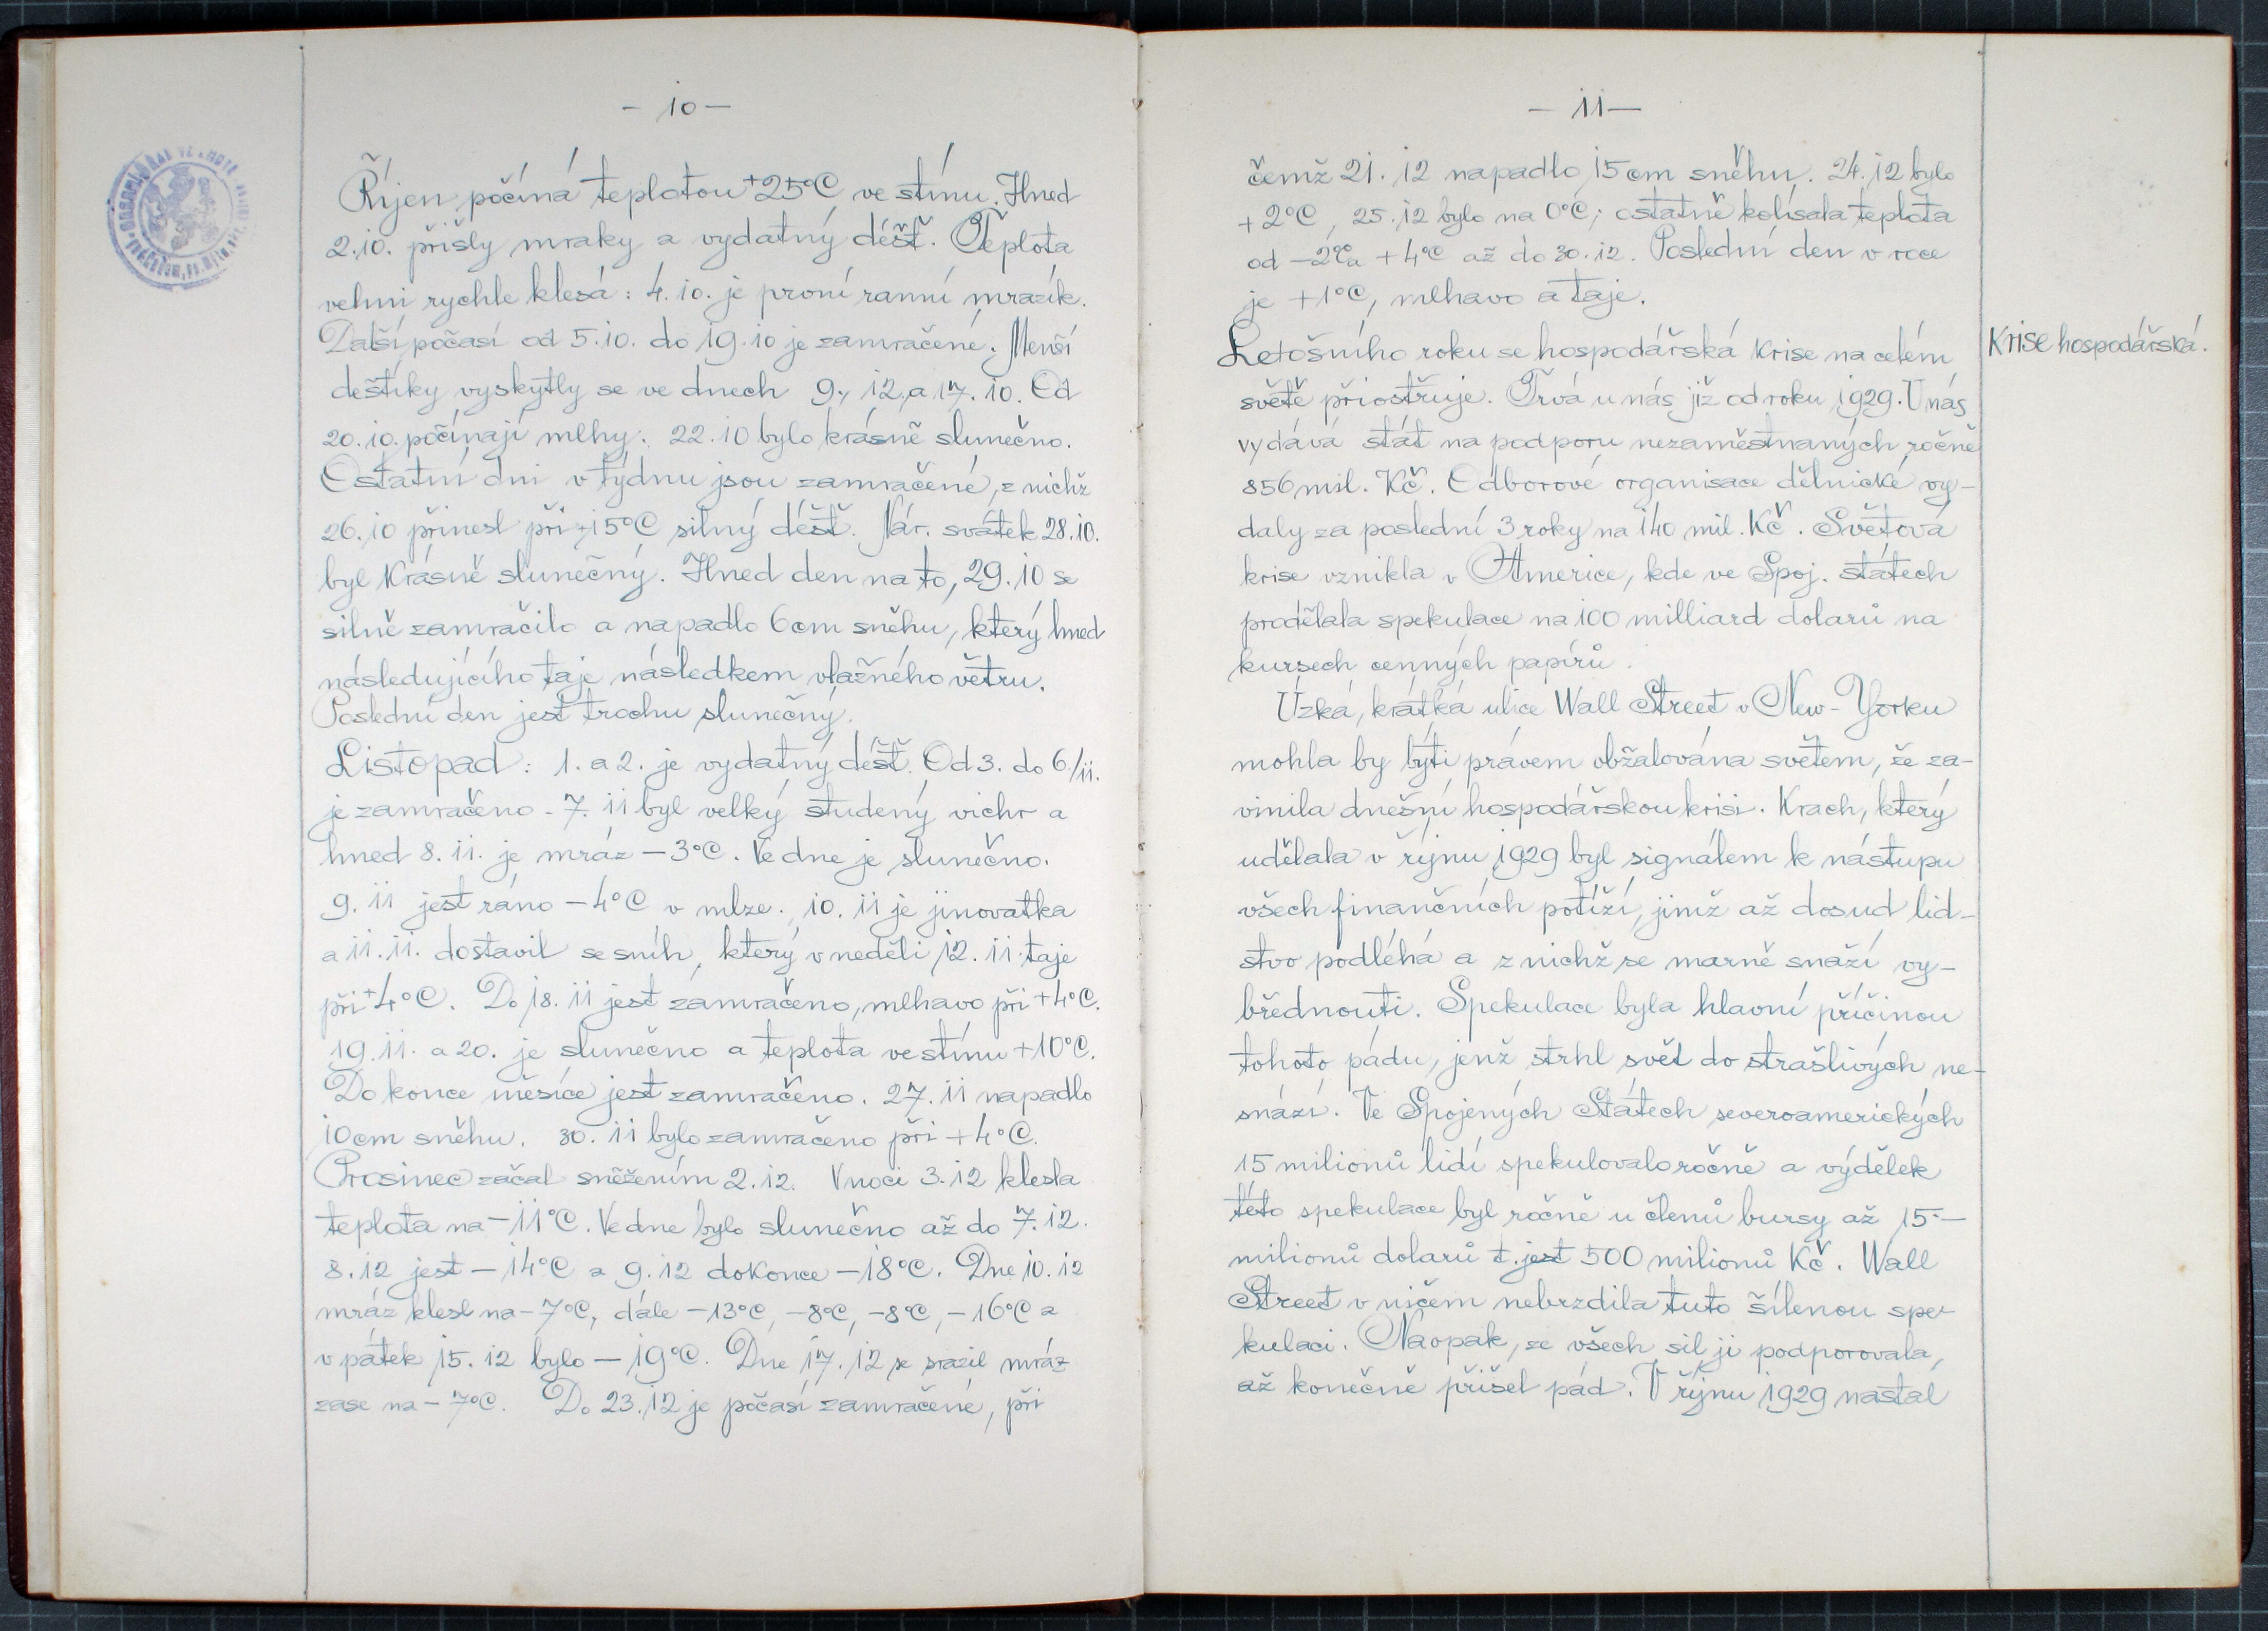 - 10 -
Říjen počíná teplotou +25°C ve stínu. Hned
2.10. přišly mraky a vydatný déšť. Teplota
velmi rychle klesá: 4.10. je první ranní mrazík.
Další počasí od 5.10. do 19.10 je zamračené. Menší
deštíky vyskytly se ve dnech 9., 12. a 17. 10. Od
20.10. počínají mlhy. 22.10 bylo krásně slunečno.
Ostatní dni v týdnu jsou zamračené, z nichž
26.10 přinesl při +15°C silný déšť. Nár. svátek 28.10.
byl krásně slunečný. Hned den na to, 29.10 se
silně zamračilo a napadlo 6cm sněhu, který hned
následujícího taje následkem vlažného větru.
Poslední den jest trochu slunečný.
Listopad: 1. a 2. je vydatný déšť. Od 3. do 6./11.
je zamračeno - 7. 11 byl velký studený vichr a
hned 8. 11. je mráz -3°C. Ve dne je slunečno.
9. 11 jest ráno -4°C v mlze. 10. 11 je jinovatka
a 11. 11. dostavil se sníh, který v neděli 12. 11. taje
při +4°C. Do 18. 11 jest zamračeno, mlhavo při +4°C.
19. 11. a 20. je slunečno a teplota ve stínu +10°C.
Do konce měsíce jest zamračeno. 27. 11 napadlo
10cm sněhu. 30. 11 bylo zamračeno při +4°C.
Prosinec začal sněžením 2.12. V noci 3.12 klesla
teplota na -11°C. Ve dne bylo slunečno až do 7.12.
8.12 jest -14°C a 9.12 dokonce -18°C. Dne 10.12
mráz klesl na -7°C, dále -13°C, -8°C, -8°C, -16°C a
v pátek 15. 12 bylo -19°C. Dne 17. 12 se srazil mráz
zase na -7°C. Do 23. 12 je počasí zamračené, při
- 11 -
čemž 21. 12 napadlo 15cm sněhu. 24. 12 bylo
+2°C, 25. 12 bylo na 0°C; ostatně kolísala teplota
od -2°C a +4°C až do 30.12. Poslední den v roce
je +1°C, mlhavo a taje.
Letošního roku se hospodářská krise na celém
Krise hospodářská.
světě přiostřuje. Trvá u nás již od roku 1929. U nás
vydává stát na podporu nezaměstnaných ročně
856 mil. Kč. Odborové organisace dělnické vy-
daly za poslední 3 roky na 140 mil. Kč. Světová
krise vznikla v Americe, kde ve Spoj. státech
prodělala spekulace na 100 milliard dolarů na
kursech cenných papírů.
Úzká, krátká ulice Wall Street v New-Yorku
mohla by býti právem obžalována světem, že za-
vinila dnešní hospodářskou krisi. Krach, který
udělala v říjnu 1929 byl signálem k nástupu
všech finančních potíží, jimž až dosud lid-
stvo podléhá a z nichž se marně snaží vy-
břednouti. Spekulace byla hlavní příčinou
tohoto pádu, jenž strhl svět do strašlivých ne-
snází. Ve Spojených Státech severoamerických
15 milionů lidí spekulovalo ročně a výdělek
této spekulace byl ročně u členů bursy až 15.-
milionů dolarů t. jest 500 milionů Kč. Wall
Street v ničem nebrzdila tuto šílenou spe-
kulaci. Naopak, ze všech sil ji podporovala,
až konečně přišel pád. V říjnu 1929 nastal